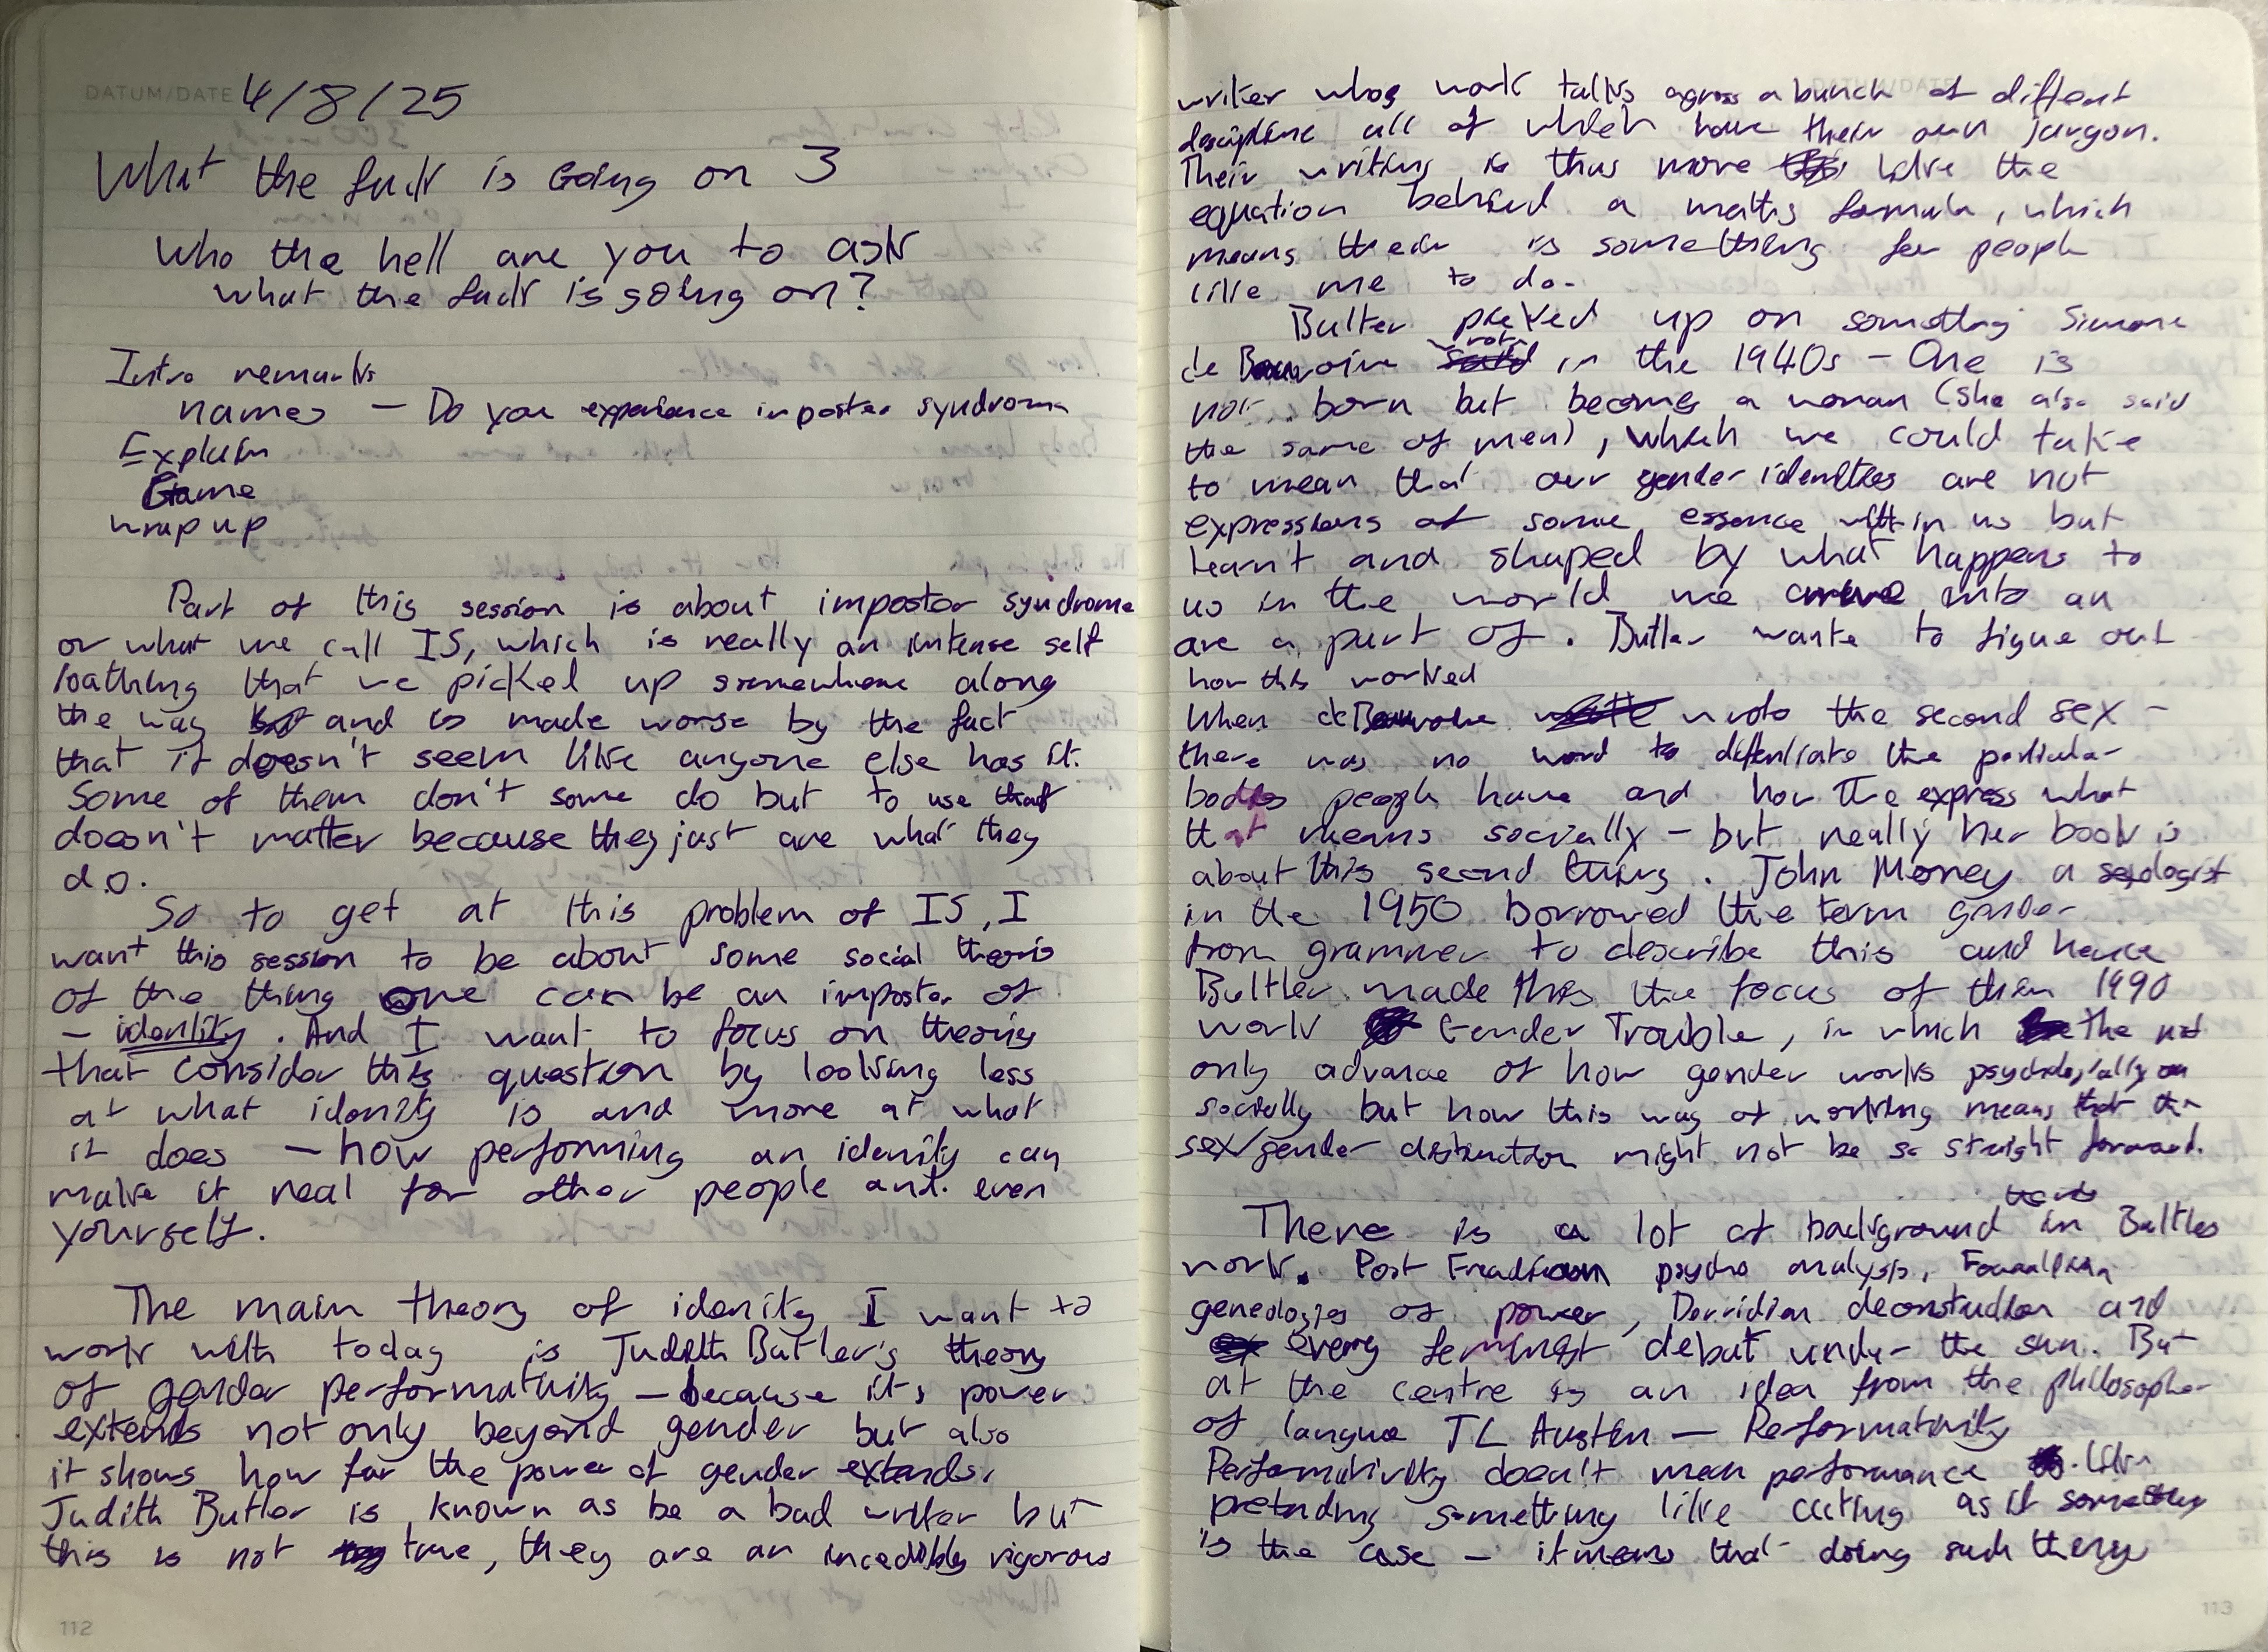 DATUM/DATE 4/8/25
What the fuck is Going on 3
Who the hell are you to ask
what the fuck is going on?
Intro remarks
names — Do you experience imposter syndrome
Explain
Game
wrap up
Part of this session is about impostor syndrome
or what we call IS, which is really an intense self
loathing that we picked up somewhere along
the way and is made worse by the fact
that it doesn't seem like anyone else has it.
Some of them don't some do but to use that
doesn't matter because they just are what they
do.
So to get at this problem of IS, I
want this session to be about some social theoris
of the thing one can be an impostor of
— identity. And I want to focus on theories
that consider this question by looking less
at what idenity is and more at what
it does — how performing an idenity can
make it real for other people and even
yourself.
The main theory of idenity I want to
work with today is Judith Butler's theory
of gender performativity — because it's power
extends not only beyond gender but also
it shows how far the power of gender extends.
Judith Butler is known as be a bad writer but
this is not true, they are an incedibly rigorous
112
DATUM/DATE
writer whos work talks across a bunch of diffent
discipline all of which have their own jargon.
Their writing is thus more like the
equation behind a maths formula, which
means their is something for people
like me to do.
Butler picked up on something Simone
de Beauvoire wrote in the 1940s — One is
not born but becomes a woman (she also said
the same of men), which we could take
to mean that our gender identities are not
expressions of some essence within us but
learn't and shaped by what happens to
us in the world we arrive into an
are a part of. Butler wants to figue out
how this worked
When de Beauvoire wrote the second sex —
there was no word to the particular
bodies people have and how the express what
that means socially — but really her book is
about this second thing. John Money a sexologist
in the 1950 borrowed the term gender
from grammer to describe this and hence
Bultler made this the focus of their 1990
work Gender Trouble, in which the not
only advance of how gender works psychologially
socially but how this way of working means that the
sex/gender distinction might not be so straight forward.
There is a lot of background in Butles
work. Post Freudian psycho analysis,
geneologies of power, Derridian deconstuction and
every feminist debat under the sun. But
at the centre is an idea from the philosopher
of langue JL Austin — Performativity
Performativity doesn't mean performance
pretending something like acting as if something
is the case — it means that doing such
113